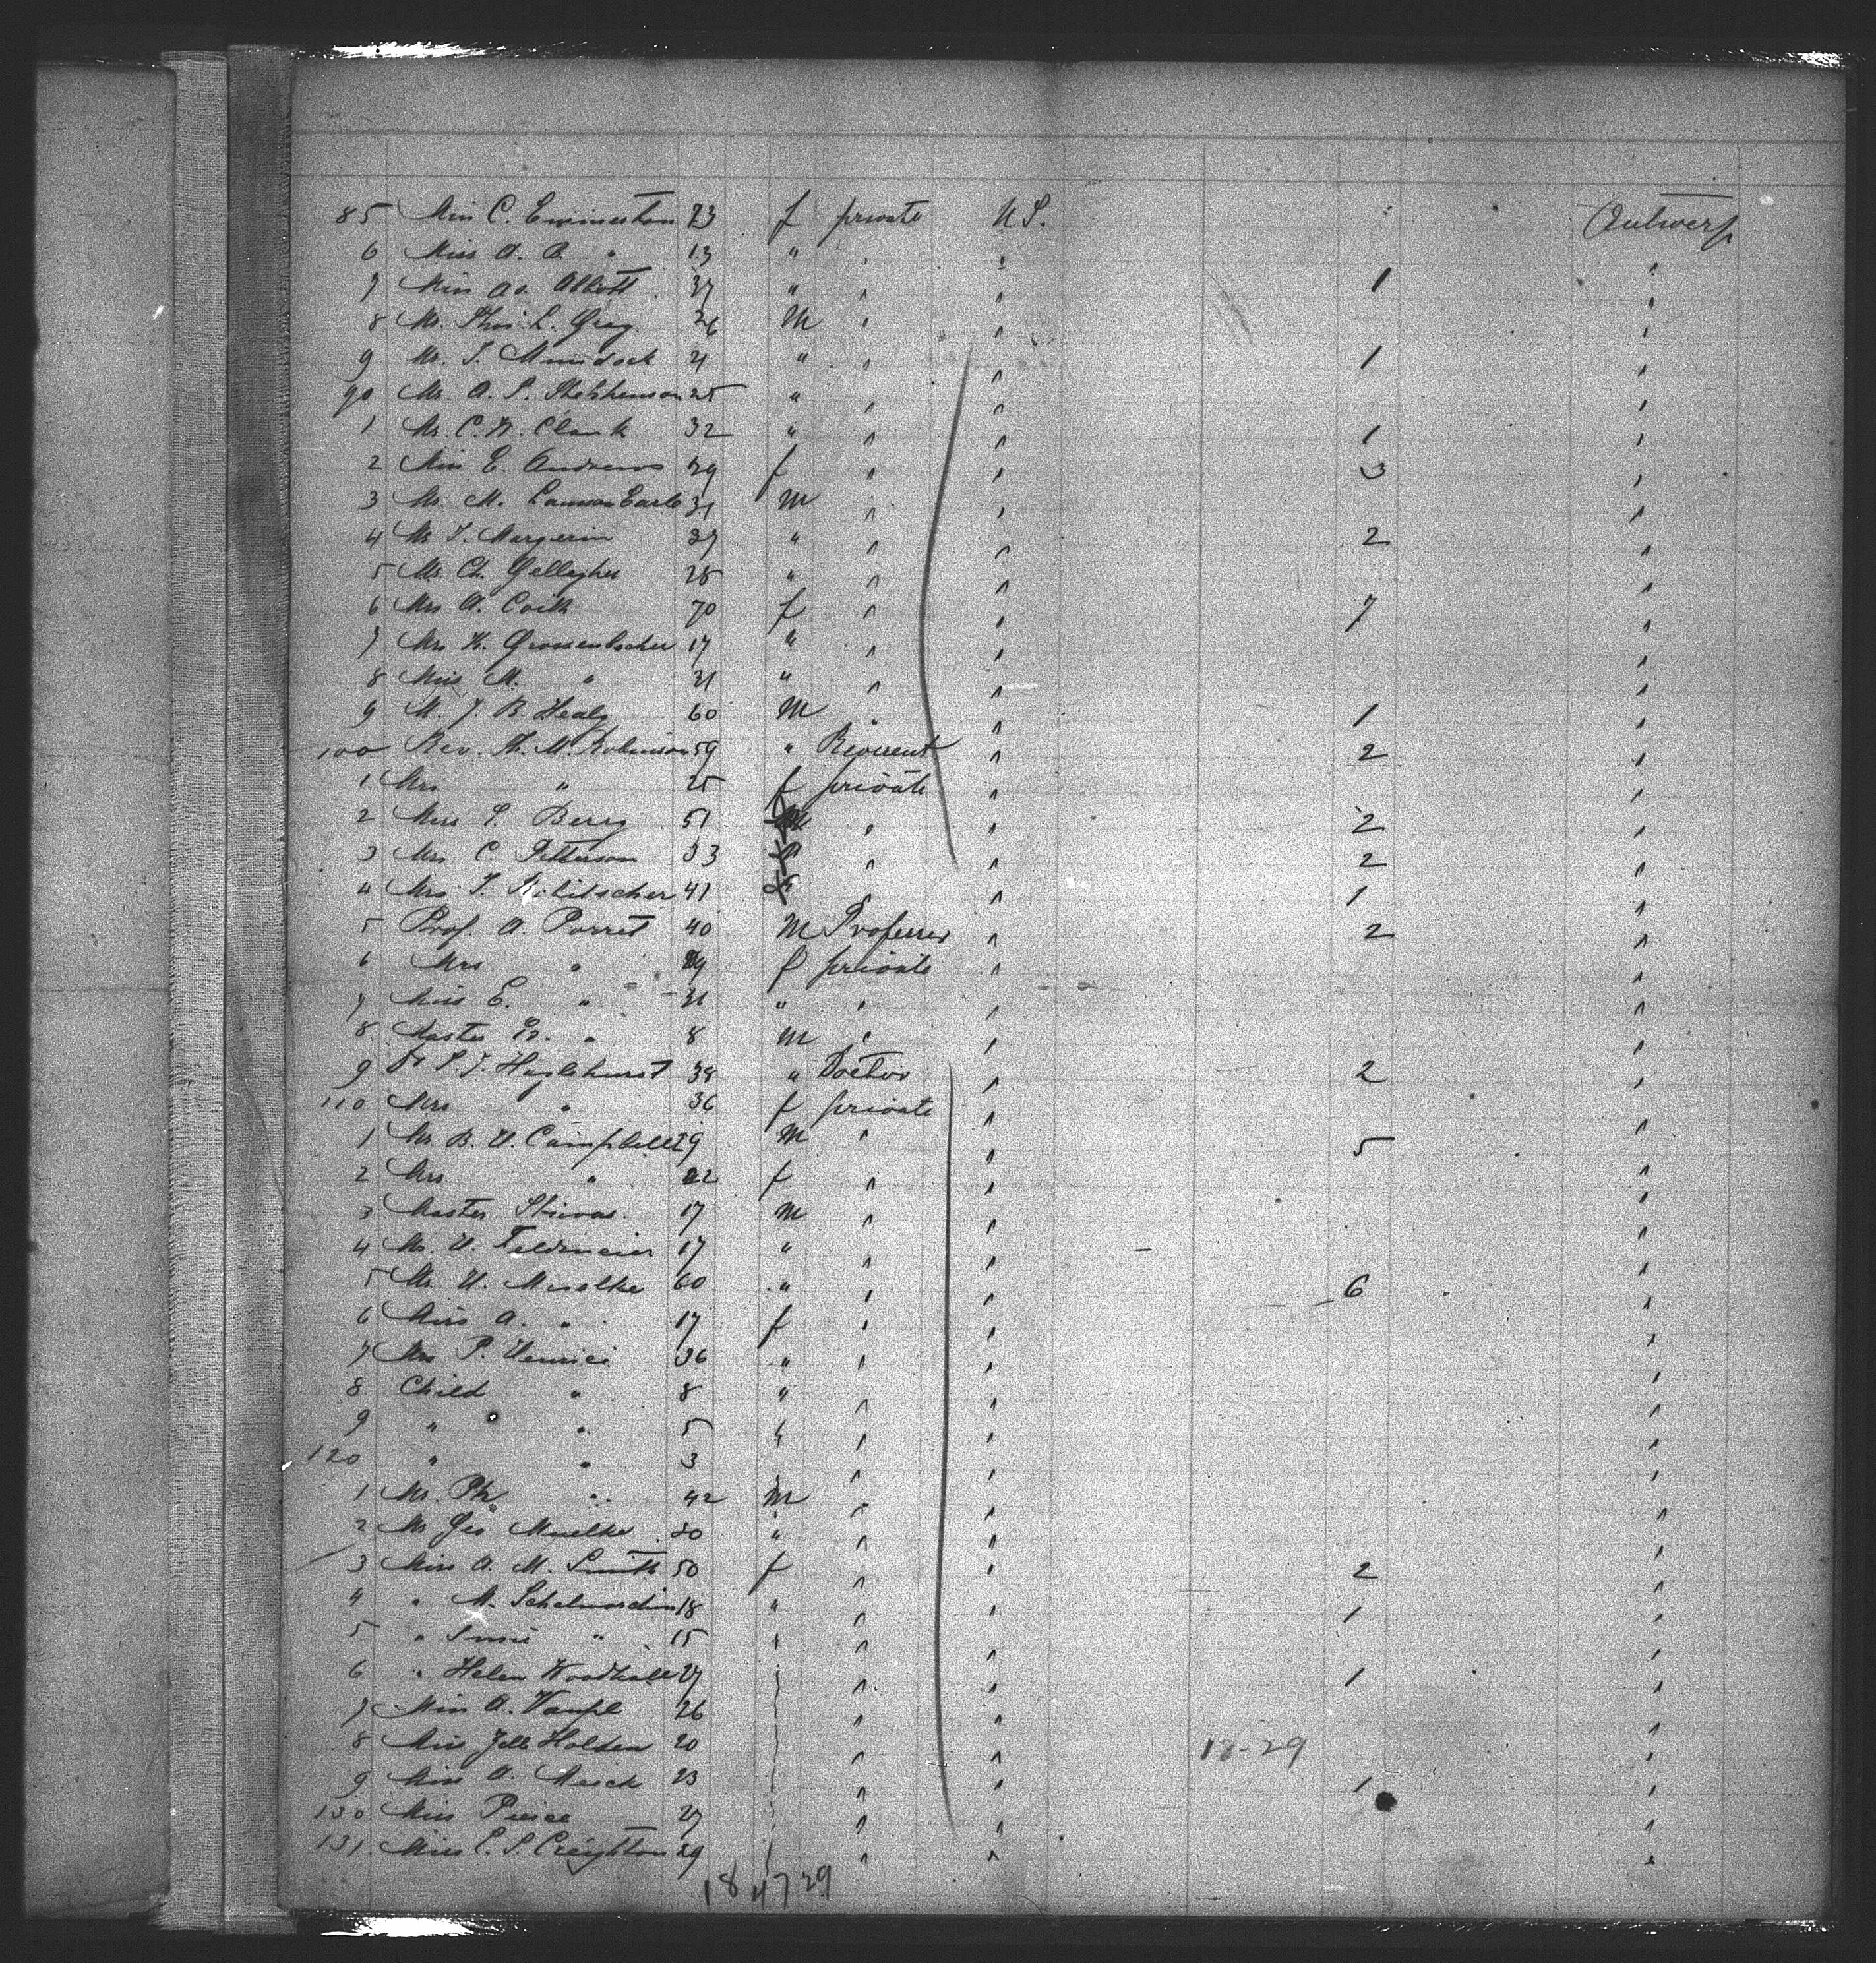 85 Miss C. Emmerston 23 f private U.S. Antwerp
6 Miss A. B. " 13 " " " "
7 Miss Ad. Abbott 37 " " " 1 "
8 Mr. Thos. L. Greg 26 M " " "
9 Mr. J. Murdock 21 " " " 1 "
90 Mr. A. S. Stephenson 25 " " " "
1 Mr. C. H. Clark 32 " " " 1 "
2 Miss E. Andrews 29 f " " 3 "
3 Mr. M. Lamson Earle 31 M " " "
4 Mr J. Margerin 37 " " " 2 "
5 Mr. Ch. Gellagher 28 " " " "
6 Mrs A. Coith 70 f " " 7 "
7 Mrs H. Grossenbacher 17 " " " "
8 Miss M. " 31 " " " "
9 M. J. B. Healy 60 M " " 1 "
100 Rev. Th. M. Robinson 59 " Reverent " 2 "
1 Mrs " 25 f private " "
2 Miss S. Berry 51 f " " 2 "
3 Mrs. C. Petterson 53 f " " 2 "
4 Mrs J. 41 f " " 1 "
5 Prof A. Porret 40 M Professor " 2 "
6 Mrs " f private " "
7 Miss E. " " " " "
8 Master " 8 M " " "
9 Dr S. J. Haslehurst 38 " Doctor " 2 "
110 Mrs " 36 f private " "
1 Mr. B. U. Campbell 29 M " " 5 "
2 Mrs " 22 f " " "
3 Master 17 M " " "
4 Mr. U. Feldmeier 17 " " " "
5 Mr. U. Muelke 60 " " " 6 "
6 Miss A. " 17 f " " "
7 Mrs P. Henrici 36 " " " "
8 Child " 8 " " " "
9 " " 5 " " " "
120 " " 3 " " "
1 Mr. Ph " 42 M " " "
2 Mr Geo Muelke 20 " " " "
3 Miss A. M. Smith 50 f " " 2 "
4 " M. 18 " " " 1 "
5 " Susie " 15 " " " "
6 " Helen Woodhall 27 " " 1 "
7 Miss A. Vaupel 26 " " "
8 Miss Holden 20 " " 18-29 "
9 Miss A. Meick 23 " " 1 "
130 Miss Pierce 27 " " "
131. Miss E. S. Creighton 29 " " "
18 47 29